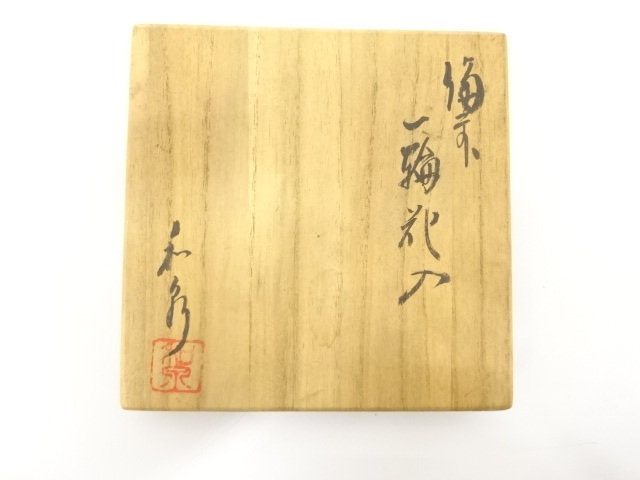 備前
一輪花入
和泉